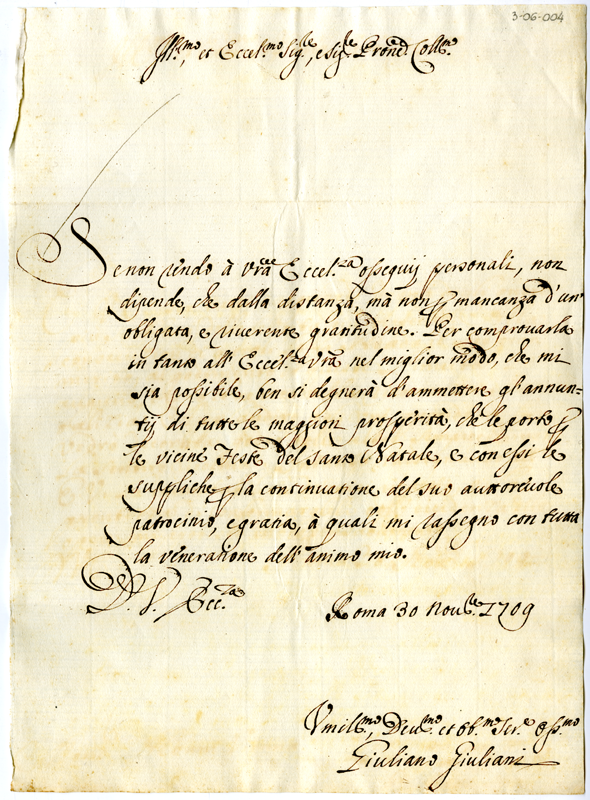 3-06-004
Ill.mo, et Eccel.mo Sig.re, e Sig.re Pron.e Coll.mo
Se non rendo à Vra Eccel.za ossequij personali, non
dipende, che dalla distanza, mà non p mancanza d'un'
obligata, e riverente gratitudine. Per comprouarla
in tanto all'Eccel.za Vra nel miglior modo, che mi
sia possibile, ben si degnerà d'ammettere gl'annun=
tij di tutte le maggiori prosperità, che le porto p
le vicine Feste del santo Natale, e con essi le
suppliche p la continuatione del suo auttoreuole
patrocinio, e gratia, à quali mi rassegno con tutta
la veneratione dell'animo mio.
D. V. Ecc.za
Roma 30 Nou.re 1709
Vmil.mo, Deu.mo et ob.mo Ser.e oss.mo
Giuliano Giuliani